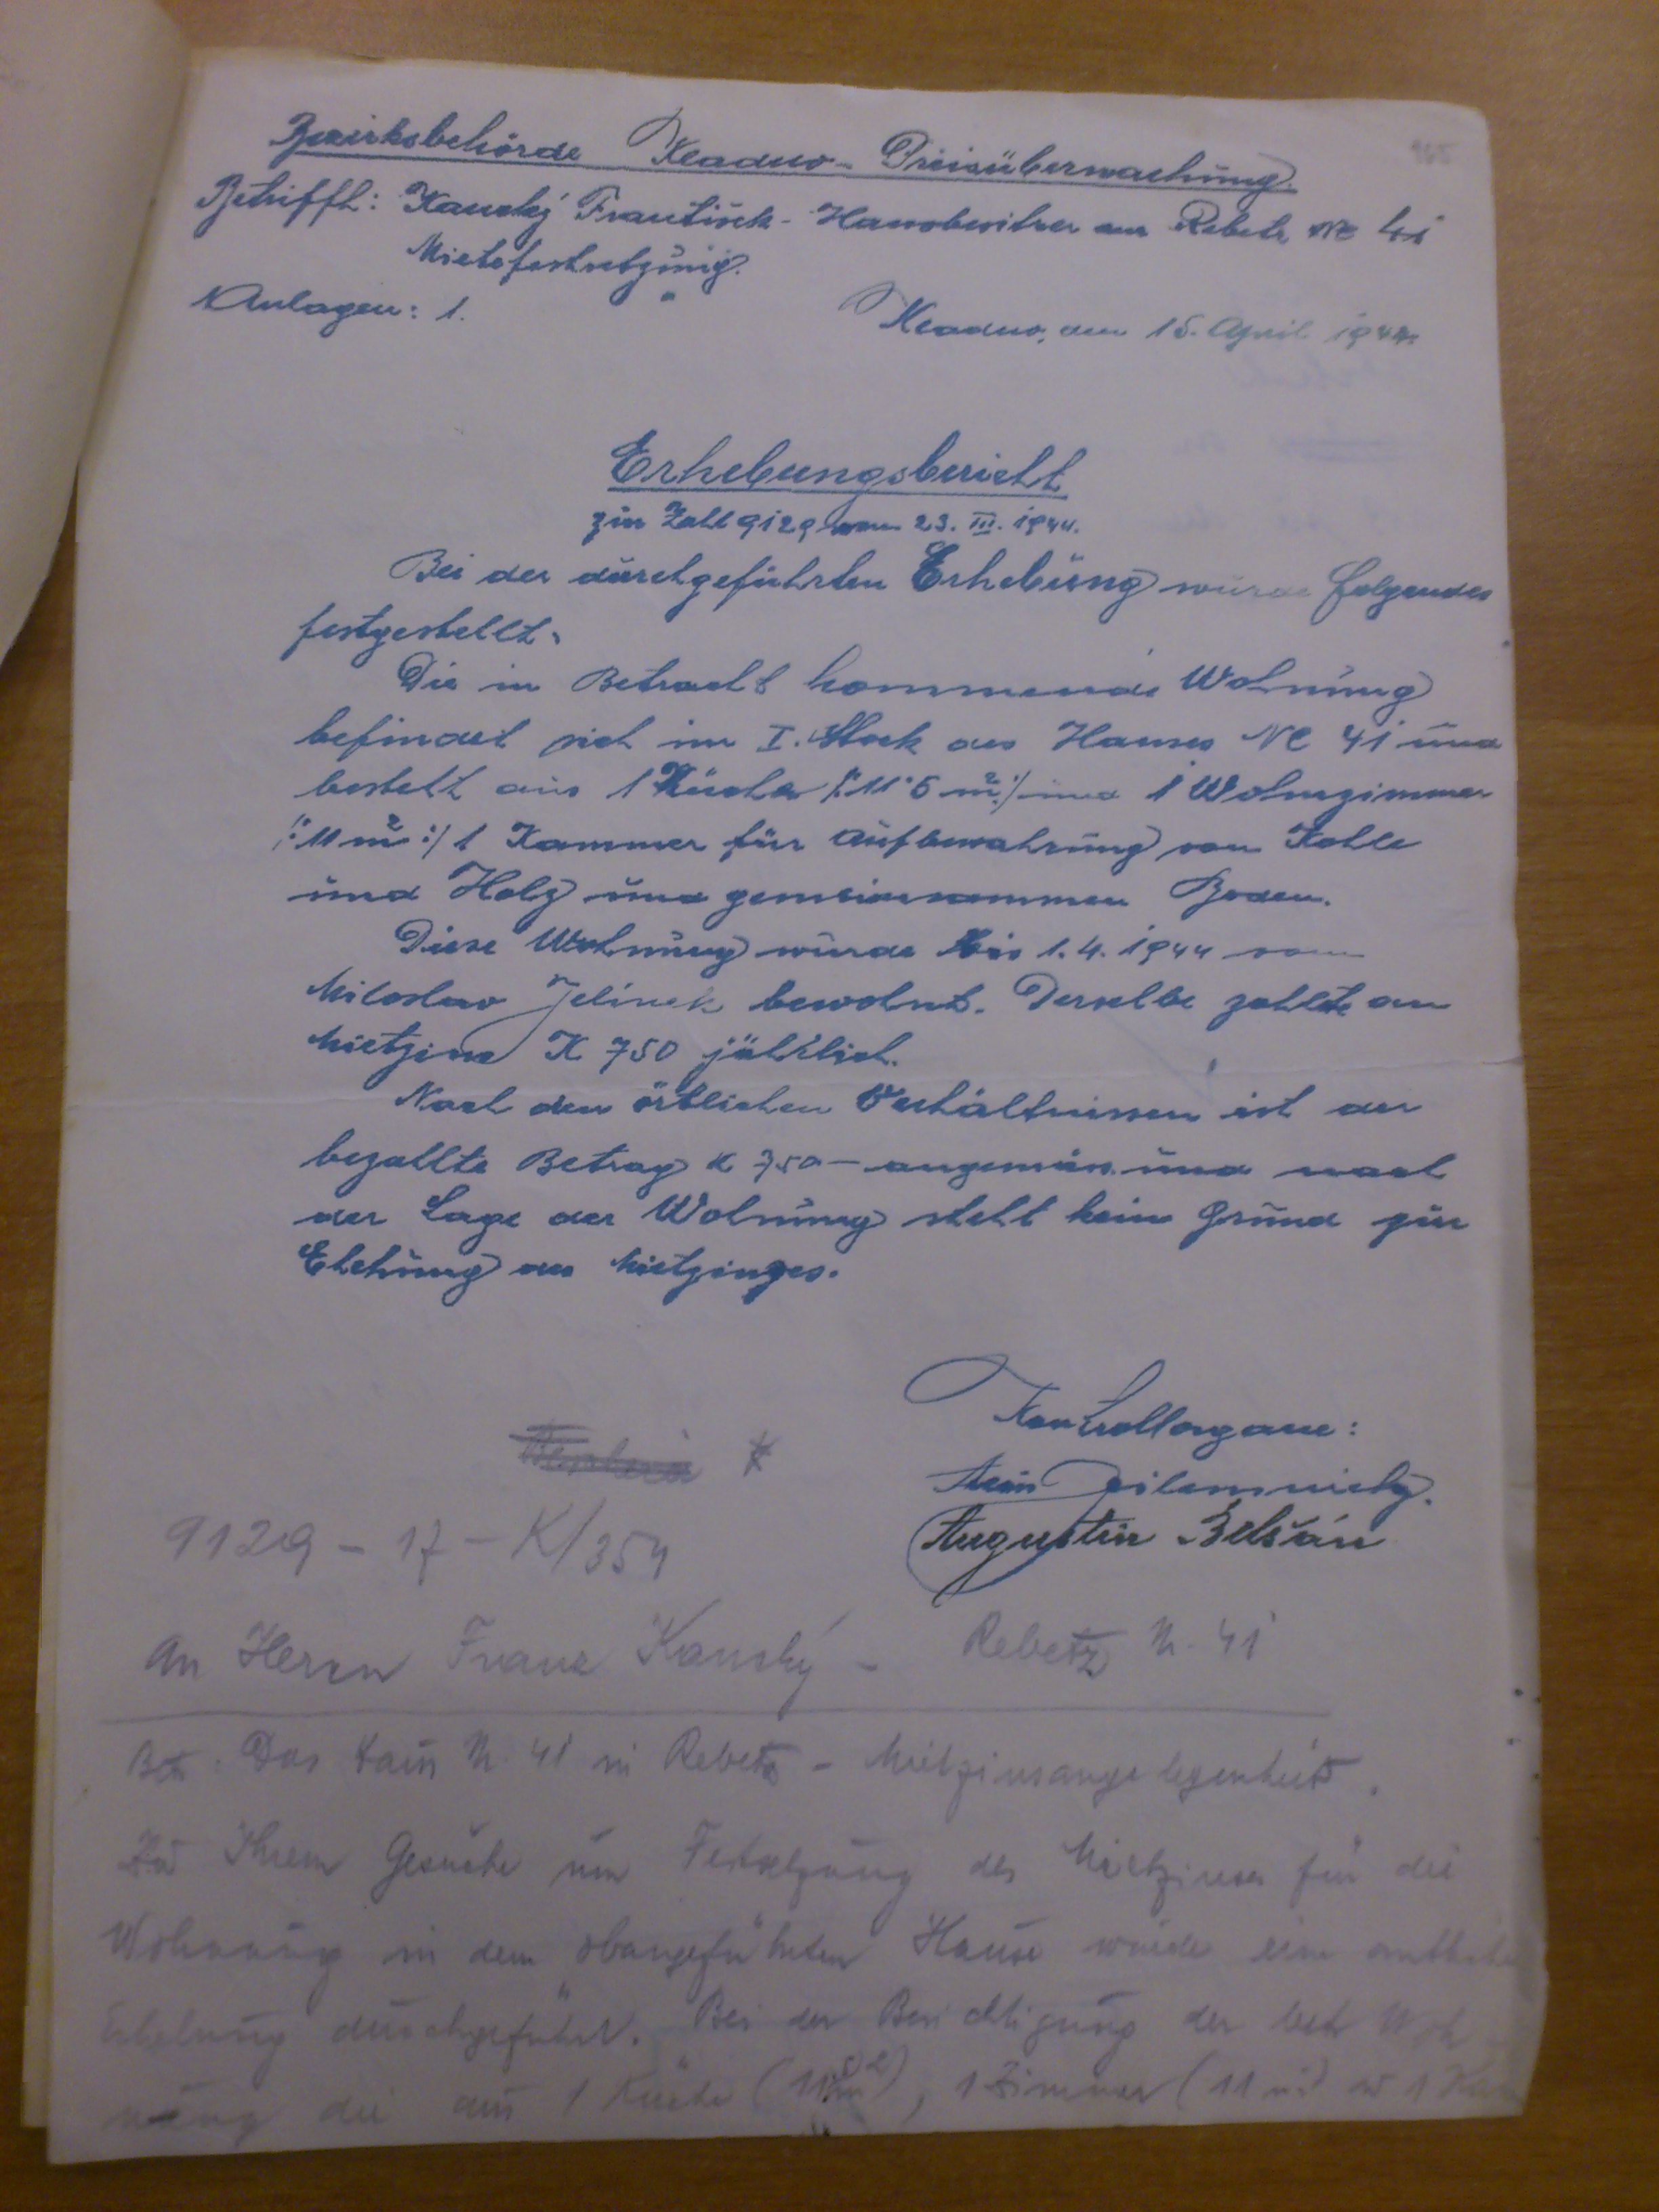 965
Bezirksbehörde Kladno - Preisüberwachung.
Betrifft: Kauský František - Hausbesitzer aus Rebetz Nº 41
Mietsfestsetzung.
Anlagen: 1.
Kladno, den 15. April 1944.
Erhebungsbericht
zur Zahl 9129 vom 23. III. 1944.
Bei der durchgeführten Erhebung wurde folgendes
festgestellt.
Die in Betracht kommende Wohnung
befindet sich im I. Stock des Hauses NC 41 und
besteht aus 1 Küche /:11·5 m²:/ und 1 Wohnzimmer
/:11 m²:/ 1 Kammer für Aufbewahrung von Kohle
und Holz und gemeinsammen Boden.
Diese Wohnung wurde bis 1.4.1944 vom
Miloslav Jelínek bewohnt. Derselbe zahlte an
Mietzins K 750 jährlich.
Nach den örtlichen Verhältnissen ist der
bezahlte Betrag K 750 – angemäss und nach
der Lage der Wohnung steht kein Grund zur
Ehehung des Mietzinzes.
Kontrollorgane:
Augustin
9129 – 17 – K/354
An Herrn Franz Kauský – Rebetz N. 41
Betr. Das Haus N. 41 in Rebetz – Mietzinsangelegenheit.
Zu Ihrem Gesuche um Festsetzung des Mietzinses für die
Wohnung in dem obangeführten Hause wurde eine amtliche
Erhebung durchgeführt. Bei der Besichtigung der betr. Woh-
nung die aus 1 Küche (11,5 m²), 1 Zimmer (11 m²) u 1